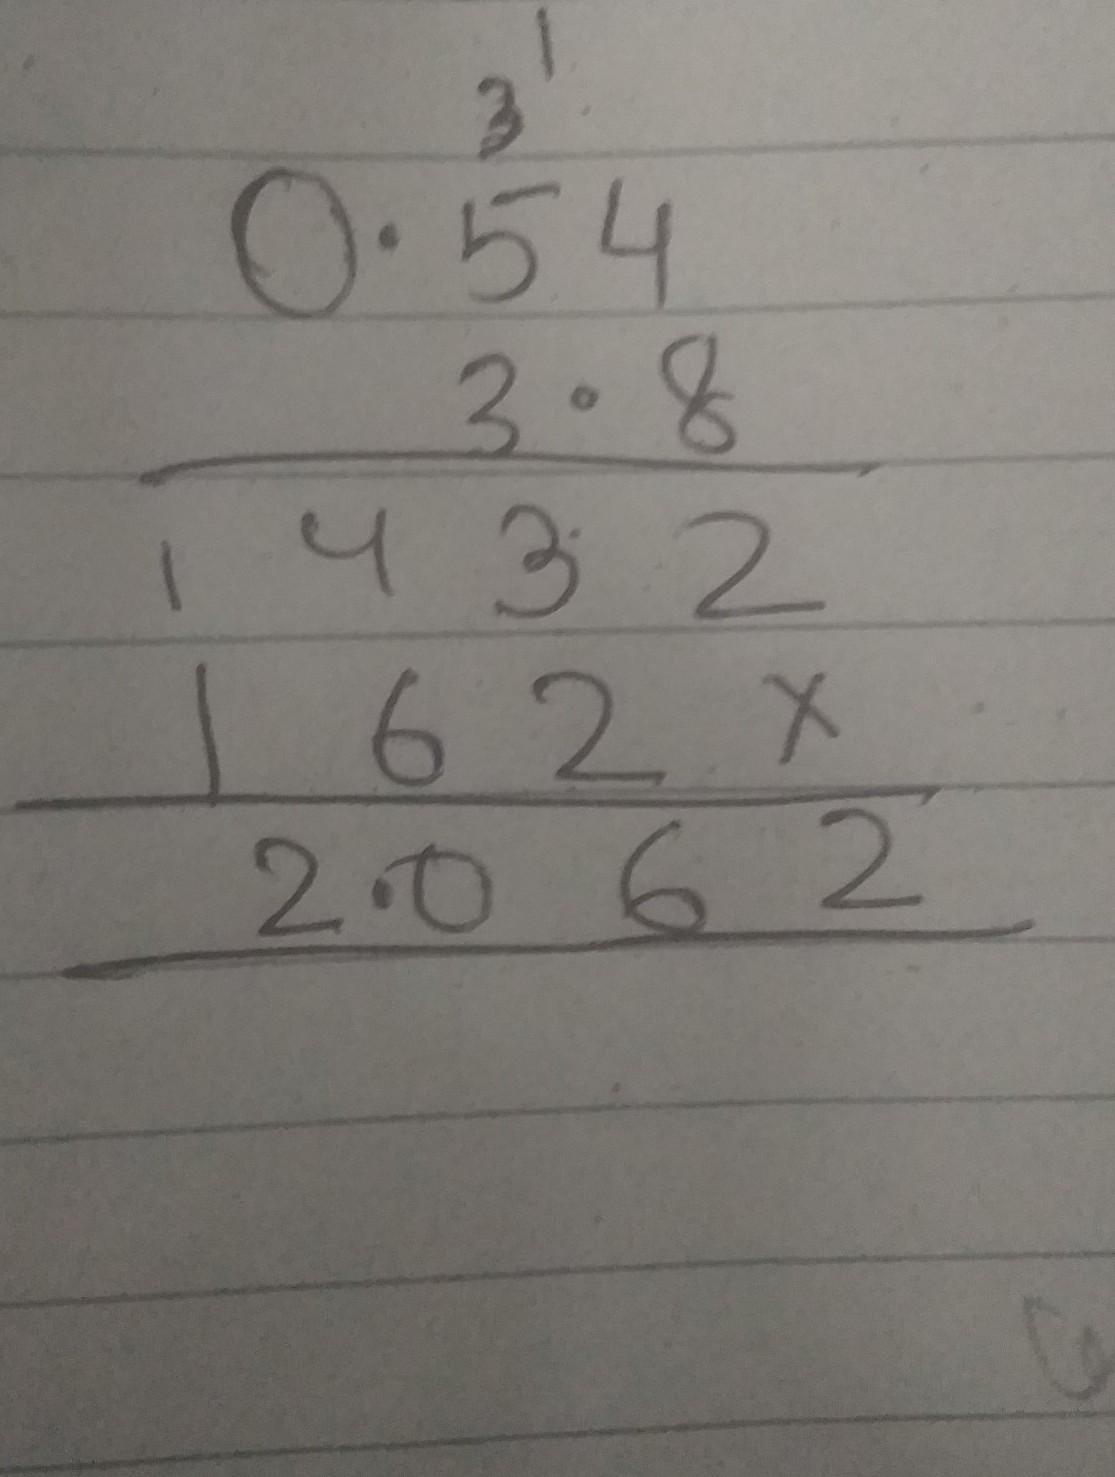 1
3
0.54
3.8
1 4 3 2
1 6 2 x
2.0 6 2